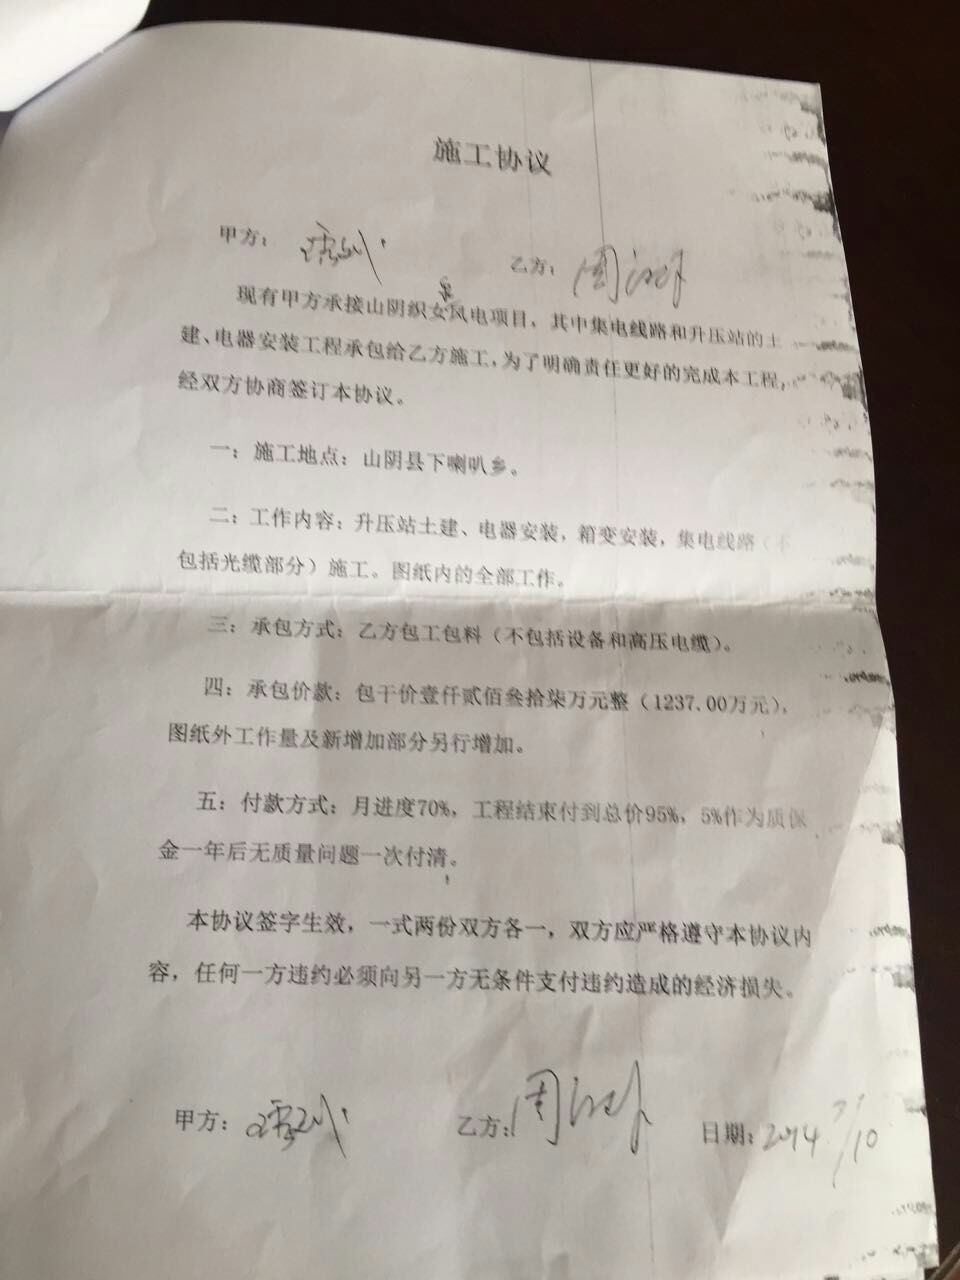 施工协议
甲方： 乙方：周
现有甲方承接山阴织女泉风电项目，其中集电线路和升压站的土
建、电器安装工程承包给乙方施工，为了明确责任更好的完成本工程，
经双方协商签订本协议。
一：施工地点：山阴县下喇叭乡。
二：工作内容：升压站土建、电器安装，箱变安装，集电线路（不
包括光缆部分）施工。图纸内的全部工作。
三：承包方式：乙方包工包料（不包括设备和高压电缆）。
四：承包价款：包干价壹仟贰佰叁拾柒万元整（1237.00万元），
图纸外工作量及新增加部分另行增加。
五：付款方式：月进度70%，工程结束付到总价95%，5%作为质保
金一年后无质量问题一次付清。
本协议签字生效，一式两份双方各一，双方应严格遵守本协议内
容，任何一方违约必须向另一方无条件支付违约造成的经济损失。
甲方： 乙方：周 日期：2014 7/10